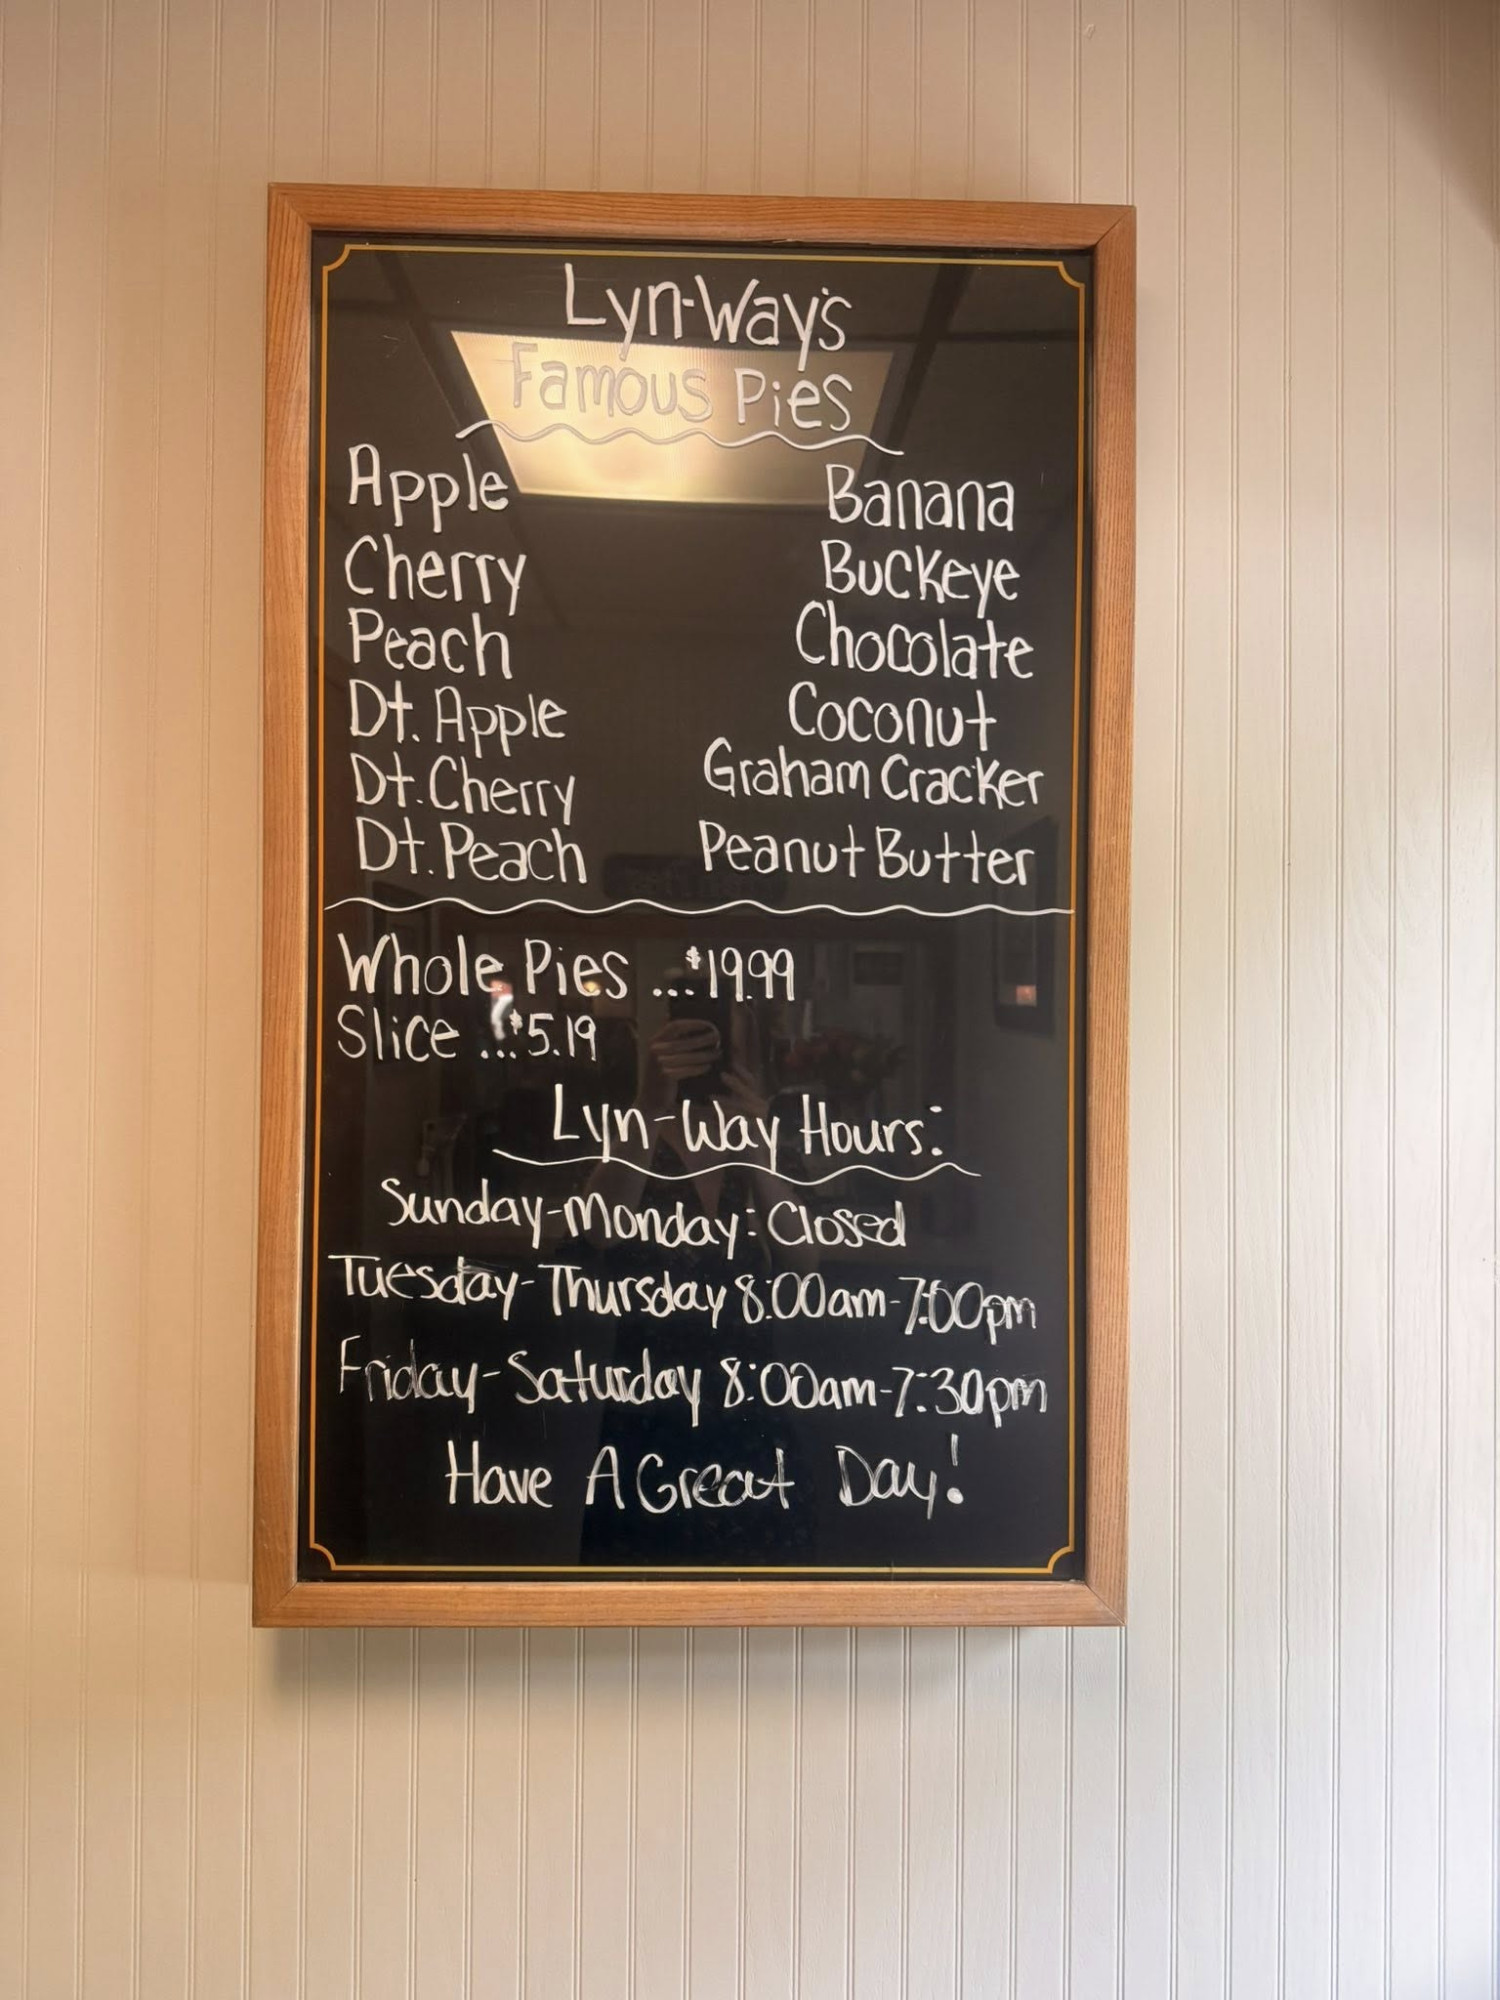 Lyn-Way's
Famous Pies
Apple
Cherry
Peach
Dt. Apple
Dt. Cherry
Dt. Peach
Banana
Buckeye
Chocolate
Coconut
Graham Cracker
Peanut Butter
Whole Pies ...$19.99
Slice ...$5.19
Lyn-Way Hours:
Sunday-Monday: Closed
Tuesday-Thursday 8:00am-7:00pm
Friday-Saturday 8:00am-7:30pm
Have A Great Day!